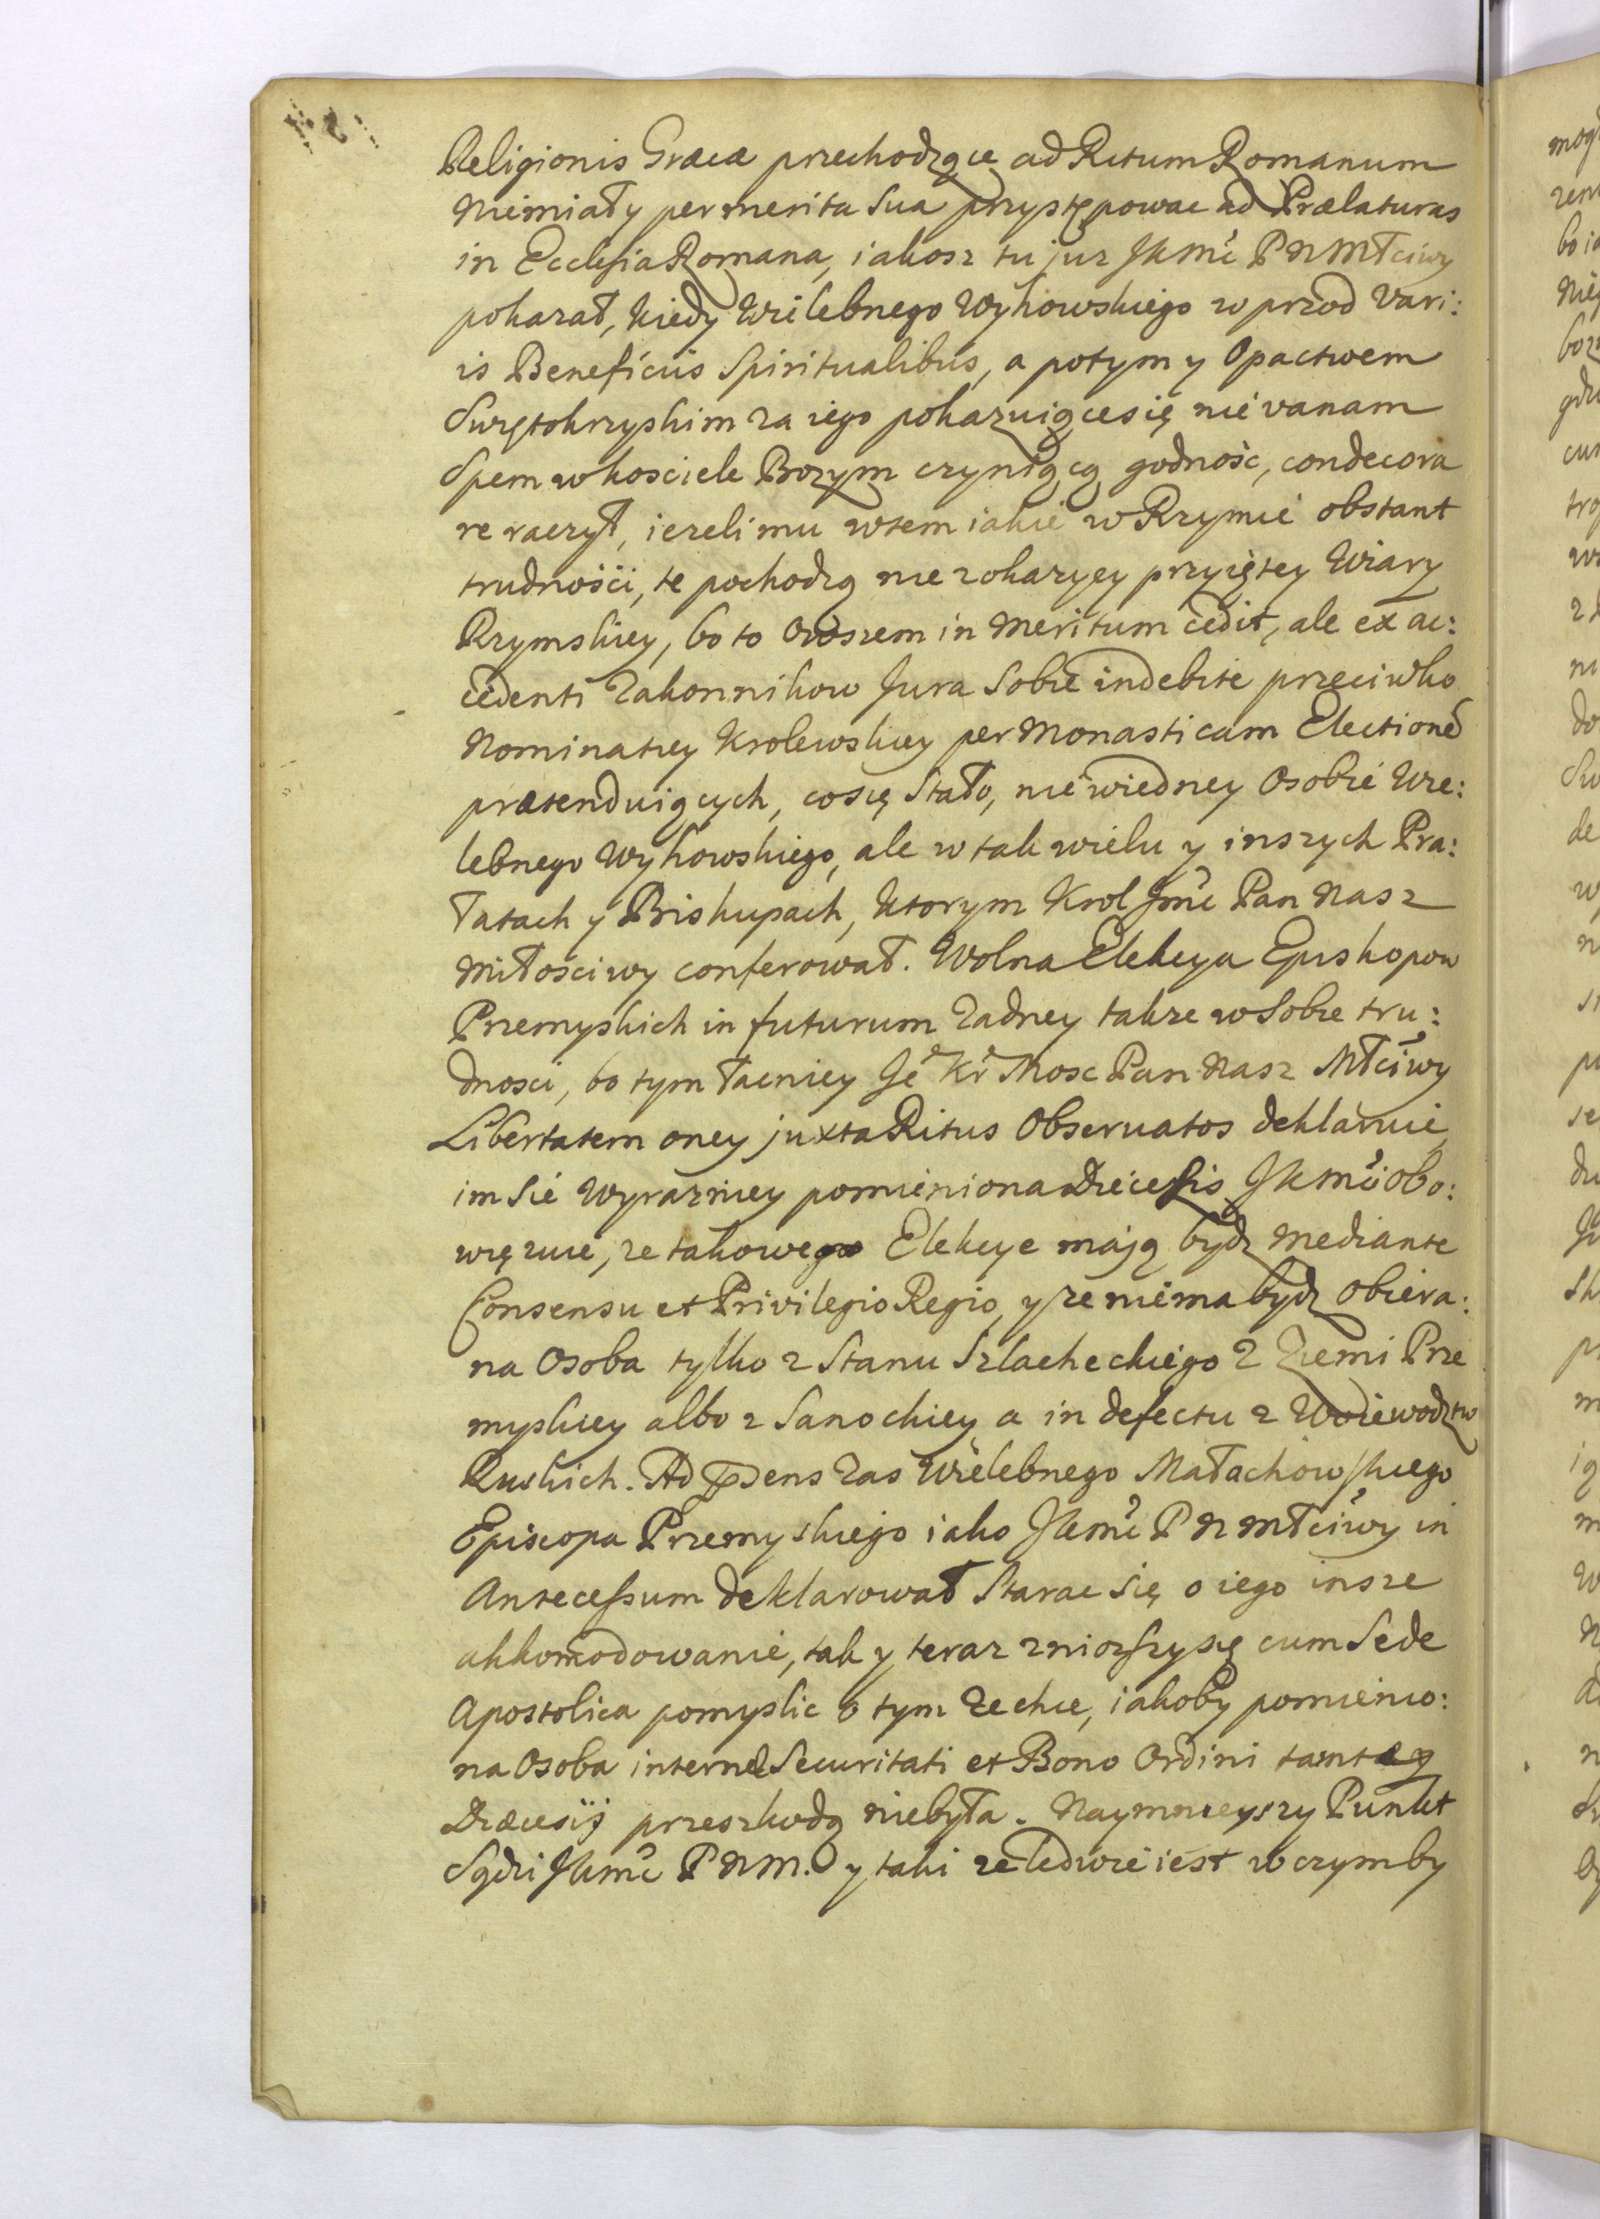 Religionis Græcæ przechodzące ad Ritum Romanum
niemiały per merita sua przystępowac ad Prælaturas
in Ecclesia Romana, iakosz tu juz JKMć P N Młciwy
pokazał, kiedy Wielebnego Wyhowskiego w przod Vari:
is Beneficiis Spiritualibus, a potym y Opactwem
Swiętokrzyskim za iego pokazuiącesię nie vanam
Spem w kosciele Bozym czyniącą godność, condecora
re raczył, iezeli mu wtem iakie w Rzymie obstant
trudnośći, te pochodzą nie z okazyey przyiętey Wiary
Rzymskiey, bo to owszem in meritum cedit, ale ex ac:
cedenti Zakonnikow Jura Sobie indebite przeciwko
Nominatiey Krolewskiey per Monasticam Electionē
prætenduiących, cosię Stało, nie wiedney Osobie Wie:
lebnego Wyhowskiego, ale w tak wielu y inszych Præ:
łatach y Biskupach, ktorym Krol Jmć Pan Nasz
Miłościwy conferował. Wolna Elekcya Episkopow
Przemyskich in futurum Zadney takze w Sobie tru:
dnosci, bo tym łacniey Jé Kr Mosc Pan Nasz Młciwy
Libertatem oney juxta Ritus Observatos deklaruie,
im Sie Wyrazniey pomieniona Diæcesis JKMci obo:
więzuie, ze takowego Elekcye mają bydz mediante
Consensu et Privilegio Regio, y ze niema bydz obiera:
na Osoba tylko z Stanu Szlacheckiego z Ziemi Prze
myskiey albo z Sanockiey a in defectu z Woiewodztw
Ruskich. Ad præsens Zas Wielebnego Małachowskiego
Episcopa Przemyskiego iako JKmć P N Młciwy in
Antecessum deklarował Starac Się o iego insze
akkomodowanie, tak y teraz zniozszysię cum Sede
Apostolica pomyslic o tym Zechce, iakoby pomienio:
na Osoba internæ Securitati et Bono Ordini tamtey
Diæcesij przeszkodą niebyła. Naymnieyszy Punkt
Sądzi JKmć P N M. y taki ze ledwie iest w czymby